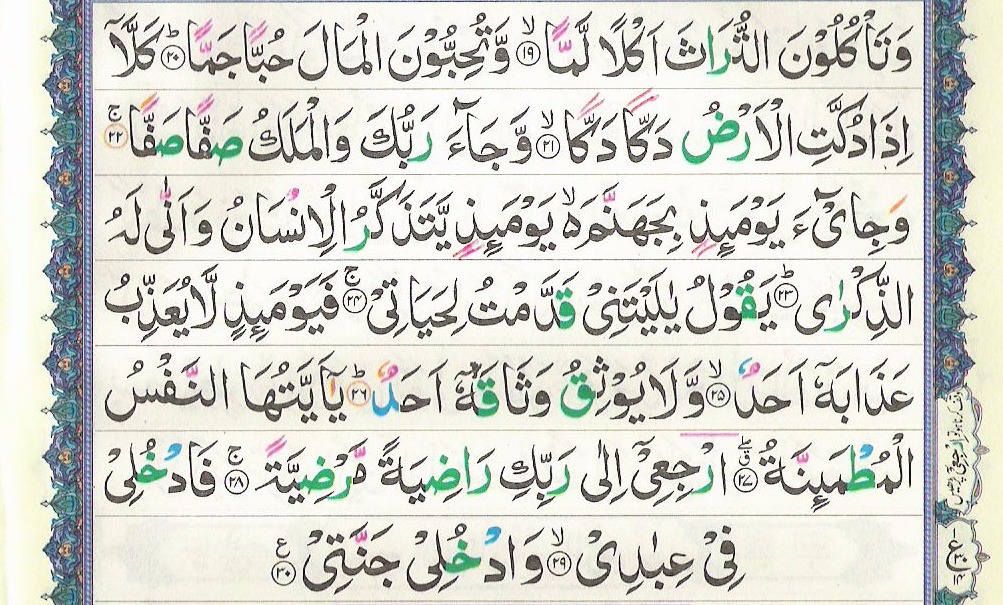 وَتَاْكُلُوْنَ التُّرَاثَ اَكْلًا لَّمًّا ۙ﴿۱۹﴾ وَّتُحِبُّوْنَ الْمَالَ حُبًّا جَمًّا ؕ﴿۲۰﴾ كَلَّاۤ
اِذَا دُكَّتِ الْاَرْضُ دَكًّا دَكًّا ۙ﴿۲۱﴾ وَّجَآءَ رَبُّكَ وَالْمَلَكُ صَفًّا صَفًّا ۚ﴿۲۲﴾
وَجِایْٓءَ يَوْمَئِذٍۭ بِجَهَنَّمَ ۙ۬ يَوْمَئِذٍ يَّتَذَكَّرُ الْاِنْسَانُ وَاَنّٰى لَهُ
الذِّكْرٰى ؕ﴿۲۳﴾ يَقُوْلُ يٰلَيْتَنِىْ قَدَّمْتُ لِحَيَاتِىْ ۚ﴿۲۴﴾ فَيَوْمَئِذٍ لَّا يُعَذِّبُ
عَذَابَهٗۤ اَحَدٌ ۙ﴿۲۵﴾ وَّلَا يُوْثِقُ وَثَاقَهٗۤ اَحَدٌ ؕ﴿۲۶﴾ يٰۤاَيَّتُهَا النَّفْسُ
الْمُطْمَئِنَّةُ ۖۗ﴿۲۷﴾ ارْجِعِىْۤ اِلٰى رَبِّكِ رَاضِيَةً مَّرْضِيَّةً ۚ﴿۲۸﴾ فَادْخُلِىْ
فِىْ عِبٰدِىْ ۙ﴿۲۹﴾ وَادْخُلِىْ جَنَّتِىْ ﴿۳۰﴾ ع
ع
۳۰